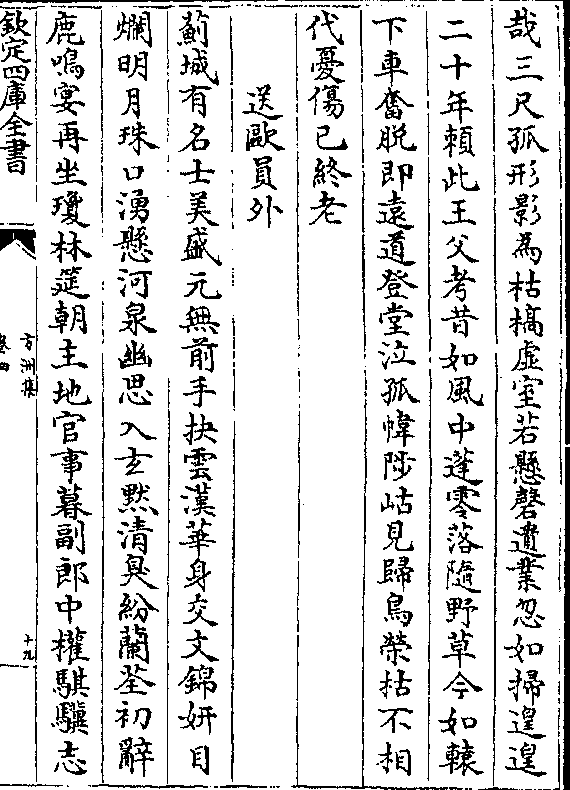 哉三尺孤形影為枯槁虛室若懸磬遺業忽如掃遑遑
二十年頼此王父考昔如風中蓬零落隨野草今如轅
下車奮脱即遠道登堂泣孤幃陟岵見歸鳥榮枯不相
代憂傷已終老
送歐員外
薊城有名士美盛元無前手抉雲漢華身交文錦妍目
爛明月珠口湧懸河泉幽思入玄黙清臭紛蘭荃初辭
鹿鳴宴再坐瓊林筵朝主地官事暮副郎中權騏驥志
欽定四庫全書
方洲集
卷四
十九